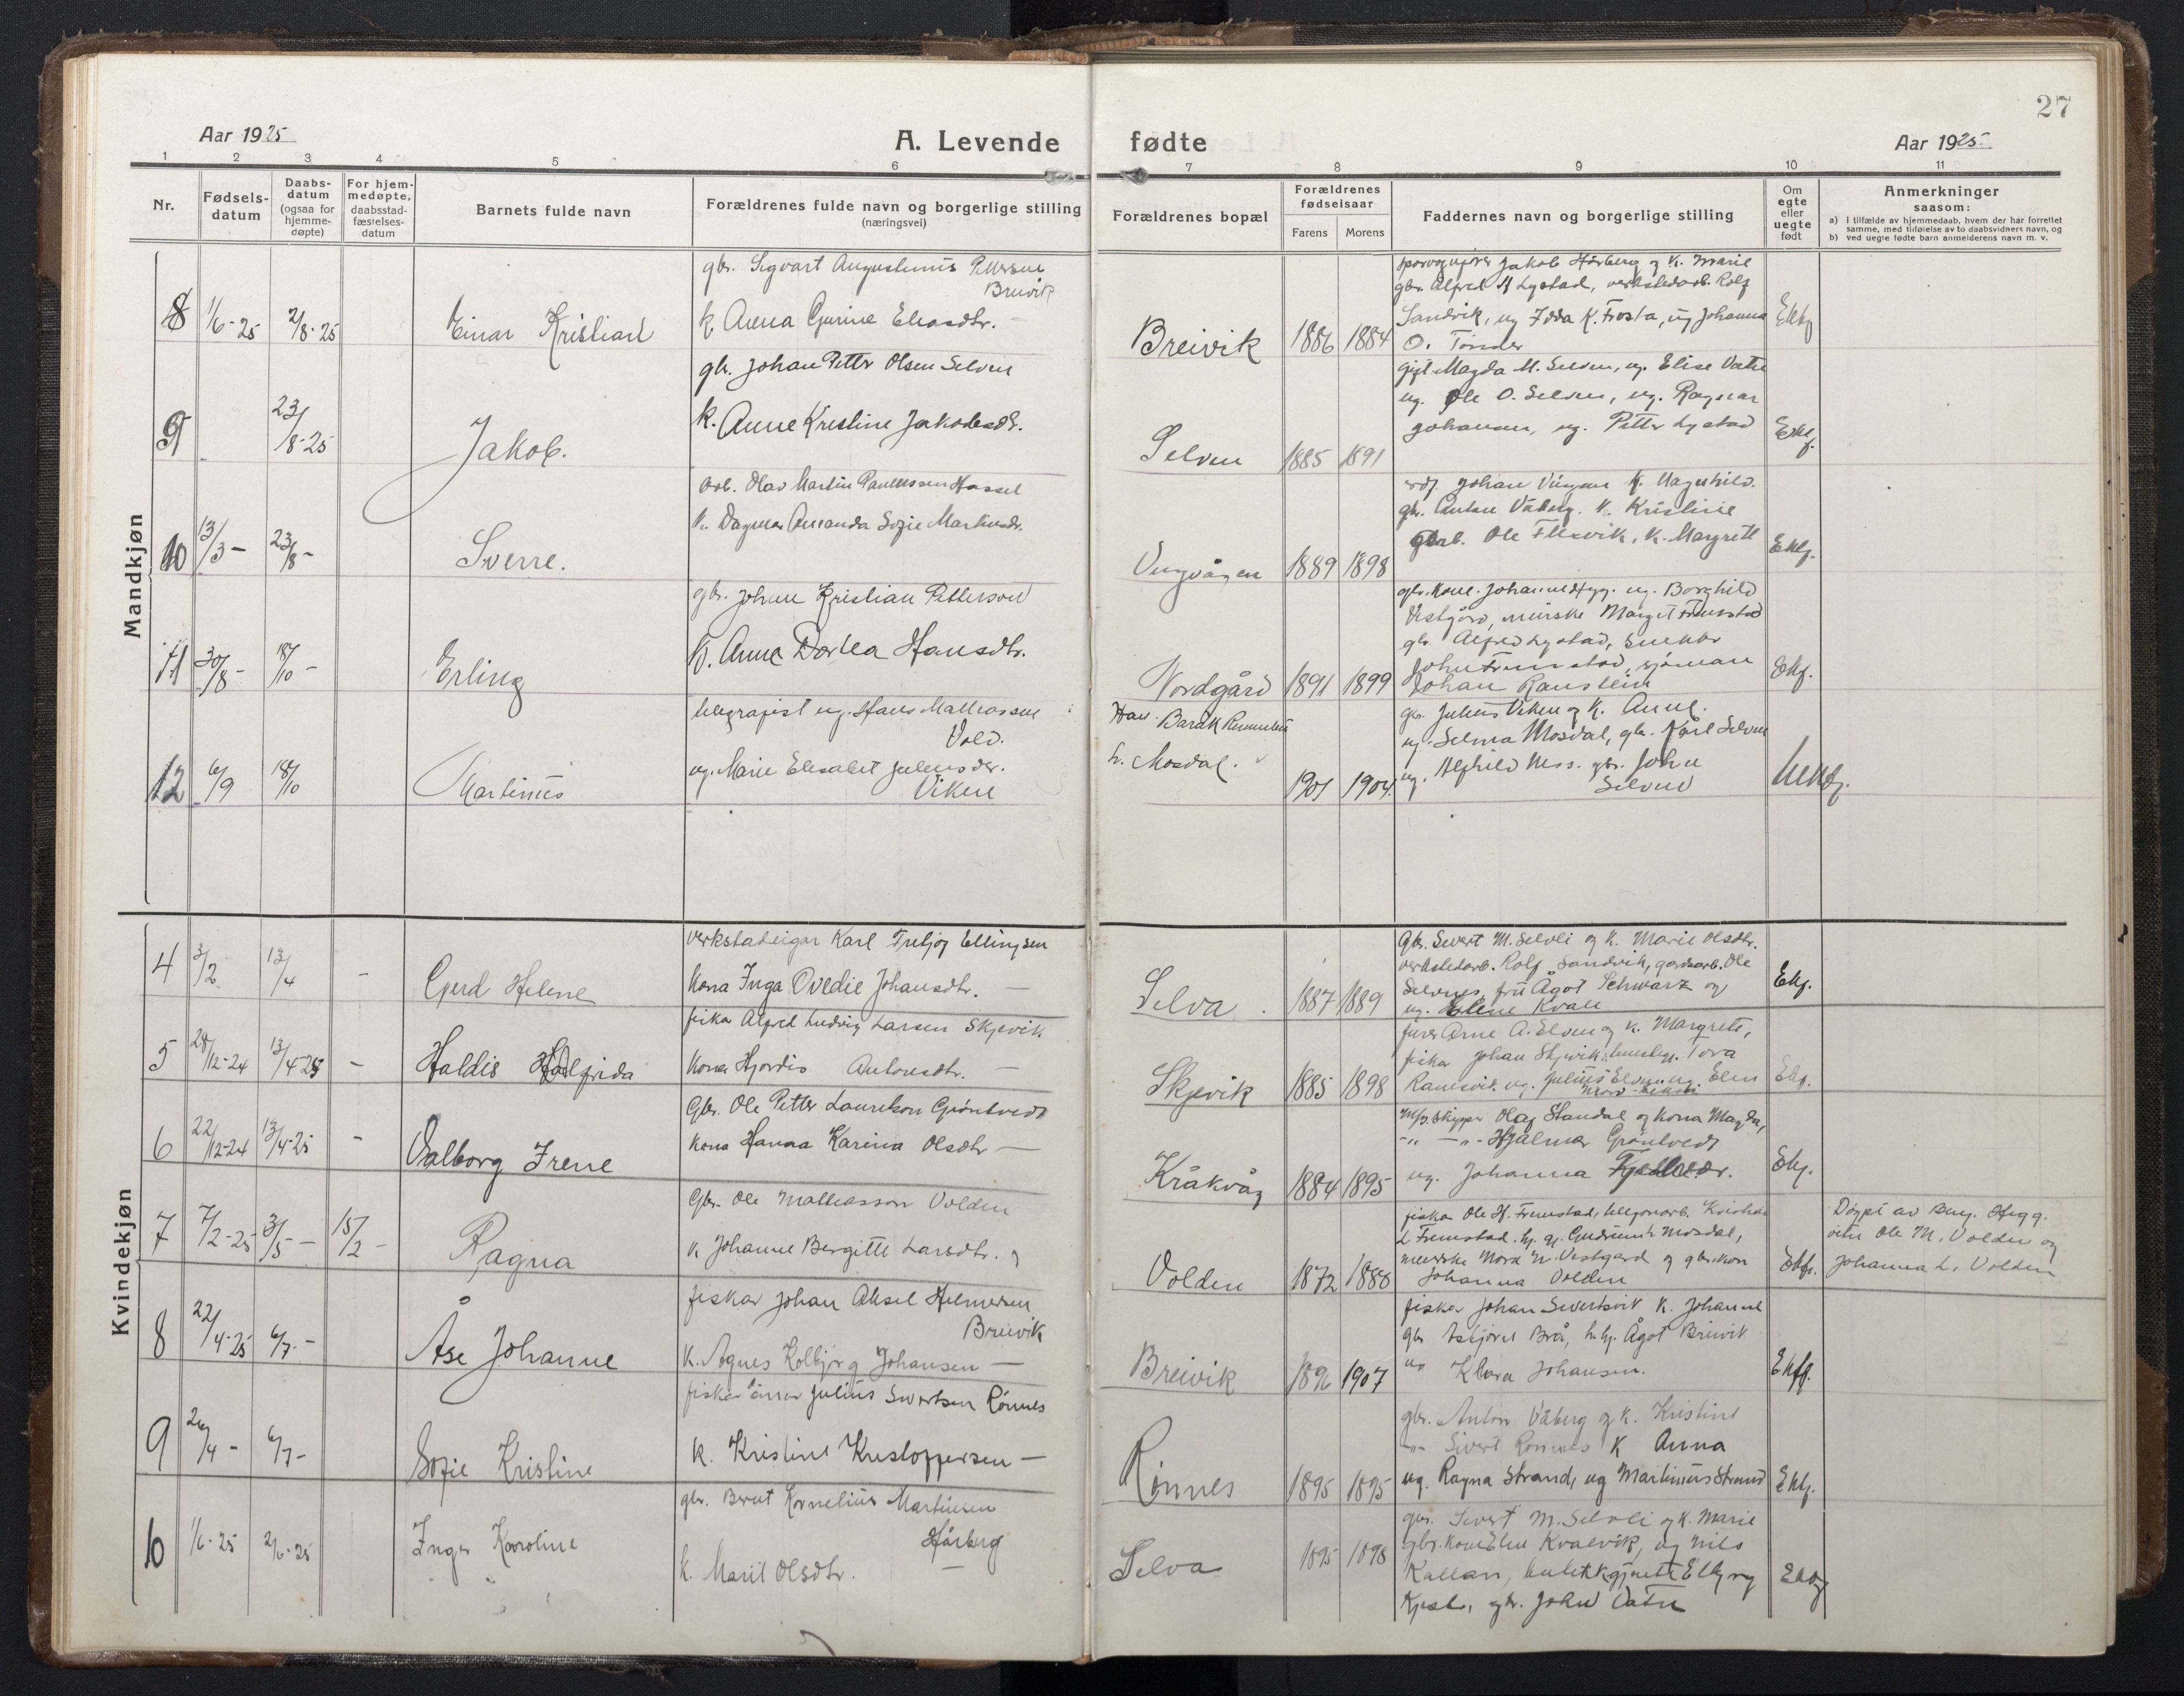 27
Aar 1925
A. Levende fødte
Aar 1925.
1 2 3 4 5 6 7 8 9 10 11
Nr.
Fødsels-
datum
Daabs-
datum
(ogsaa for
hjemme-
døpte)
For hjem-
medøpte,
daabsstad-
fæstelses-
datum
Barnets fulde navn
Forældrenes fulde navn og borgerlige stilling
(næringsvei)
Forældrenes bopæl
Forældrenes
fødselsaar
Farens Morens
Faddernes navn og borgerlige stilling
Om
egte
eller
uegte
født
Anmerkninger
saasom:
a) I tilfælde av hjemmedaab, hvem der har forrettet
samme, med tilføielse av to daabsvidners navn, og
b) ved uegte fødte barn anmelderens navn m. v.
Mandkjøn
8 1/6-25 2/8-25 Einar Kristian
gbr. Sigvart Augustinus Pettersen
Breivik
k. Anna Gurine Eliasdtr.
Breivik 1886 1884
Jakob Hårberg og k. Marie
gbr. Alfred H Lystad, verkstedarb. Rolf
Sandvik, ug Ida K. Frosta, ug Johanna
O. Tønder
Ektf
9 23/8-25 Jakob.
gbr. Johan Petter Olsen Selven
k. Anne Kristine Jakobsdtr.
Selven 1885 1891
Magda M. Selven, ug. Elise Vatn
ug. Ole O. Selven, ug. Ragnar
Johansen, ug. Petter Lystad
Ektf.
10 13/3- 23/8- Sverre.
arb. Olav Martin Paulussen Hassel
k. Dagmar Amanda Sofie Martinsdr.
1889 1898
Johan k. Ragnhild.
gbr. Anton Våberg. k. Kristine
Ole Flesvik, k. Margrete
Ektf.
11 30/8- 18/10- Erling
gbr. Johan Kristian Petterson
k. Anne Dortea Hansdtr.
Nordgård 1891 1899
gbr. kone Johanne Hegg. ug. Borghild
Vestgård, Marget Fremstad
gbr Alfred Lystad, snekker
John Fremstad, sjøman
Johan Ranstein
Ektf.
12 6/9 18/10 Martinus
telegrafist ug. Hans Mathiassen
Vold.
ug. Marie Elisabet Juliusdr.
Viken
Han. Barak
h. Mosdal.
1901 1904
gbr Julius Viken og k. Anne.
ug. Selma Mosdal, gbr. Karl Selven
ug. Alfhild Ness. gbr. John
Selven
Uektf.
Kvindekjøn
4 3/2. 13/4 - Gerd Helene
verkstateigar Karl Fretjog Ellingsen
kona Inga Ovedie Johansdtr. —
Selva. 1887 1889
Gbr. Sivert M. Selvli og k. Marie Olsdtr.
verkstedarb. Rolf Sandvik, gardsarb. Ole
Selvnes, fru Ågot Schwarz og
ug. Elene Kvale
Ekf.
5 28/12-24 13/4-25 - Haldis Halfrida
fiskar Alfred Ludvig Larsen Skjevik
kona Hjordis Antonsdtr. —
Skjevik 1885 1898
Arne A. Elven og k. Margrete,
fiskar Johan Skjevik, Tora
Ramsvik, ug. Julius Elven, ug. Elen
Ekf.
6 22/12-24 13/4-25 - Valborg Irene
Gbr. Ole Petter Lauritson Grøntvedt
kona Hanna Karina Olsdtr —
Kråkvåg 1884 1895
m/s. skipper Olaf Standal og kona Magda,
-"- -"- Hjalmar Grøntvedt
ug. Johanna
Ekf.
7 7/2-25 3/5- 15/2- Ragna
Gbr. Ole Mathiasson Volden
k Johanne Bergitte Larsdtr.
Volden 1872 1888
fiskar Ole H. Fremstad, telefonarb. Kristian
L Fremstad. Gudrun Mosdal,
Nora M. Vestgard og gbr. kon
Johanna Volden
Ektf.
Døypt av Hegg.
vitn Ole M. Volden og
Johanna L. Volden
8 22/4-25 6/7- Åse Johanne
fiskar Johan Aksel Helmersen
Breivik
k. Agnes Kolbjørg Johansen —
Breivik 1896 1907
fiskar Johan Sivertsvik k. Johanne
gbr Asbjørn Brå, Ågot Breivik
ug Klara Johansen.
Ektf.
9 26/4- 6/7- Sofie Kristine
fiskar Julius Sivertsen Rønnes
k. Kristine Kristoffersen —
Rønnes 1895 1895
gbr. Anton Våberg og k. Kristine
-"- Sivert Rønnes k Anna
ug. Ragna Strand, ug Martinus Strand
Ektf.
10 1/6-25 2/6-25 Inger Karoline
gbr. Bernt Kornelius Martinsen
Hårberg
k. Marit Olsdtr. —
Selva 1895 1898
gbr. Sivert M. Selvli og k. Marie
gbr. kone Elen Kvalvik, ug Nils
Kallan,
gbr. John Vatn
Ektf